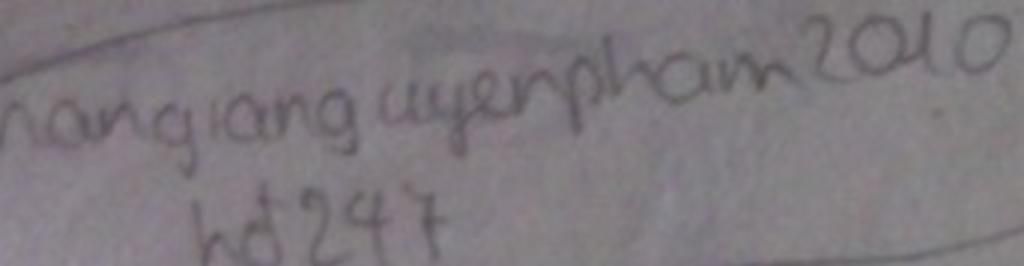 hangianguyenpham2010
hd247